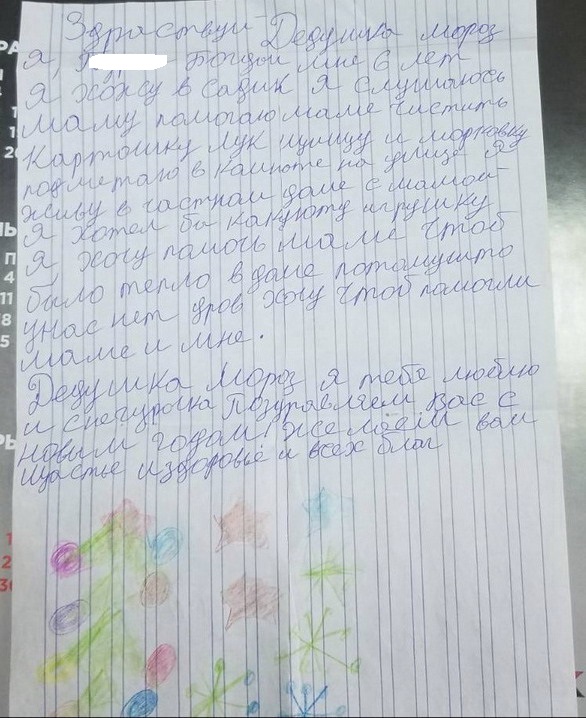 Здраствуй Дедушка мороз
Я, Богдан мне 6 лет
Я хожу в садик Я слушаюсь
маму помогаю маме чистить
Картошку лук пищу и морковку
подметаю в комноте на улице Я
живу в частном доме с мамой
Я хотел бы какуюту игрушку
Я, хочу помочь маме чтоб
было тепло в доме потомушто
унас нет дров хочу чтоб помогли
маме и мне.
Дедушка Мороз я тебя люблю
и снегурочка Поздравляем Вас с
новым годом! желаем вам
щастье издоровье и всех благ